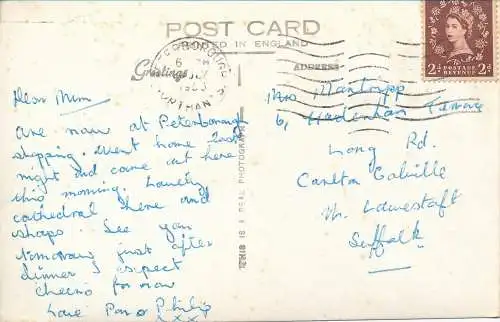 POST CARD
PRINTED IN ENGLAND
Greetings
ADDRESS
THIS IS A REAL PHOTOGRAPH
POSTAGE
REVENUE
2d 2d
Dear Mum
are now at Peterborough
shopping. Went home last
night and came out here
this morning. Lovely
cathedral here and
shops. See you
tomorrow just after
dinner I expect
cheerio for now
Love Pam & Philip
XXX
Mrs Mantripp
6,
Long Rd.
Carlton Colville
Nr. Lowestoft
Suffolk